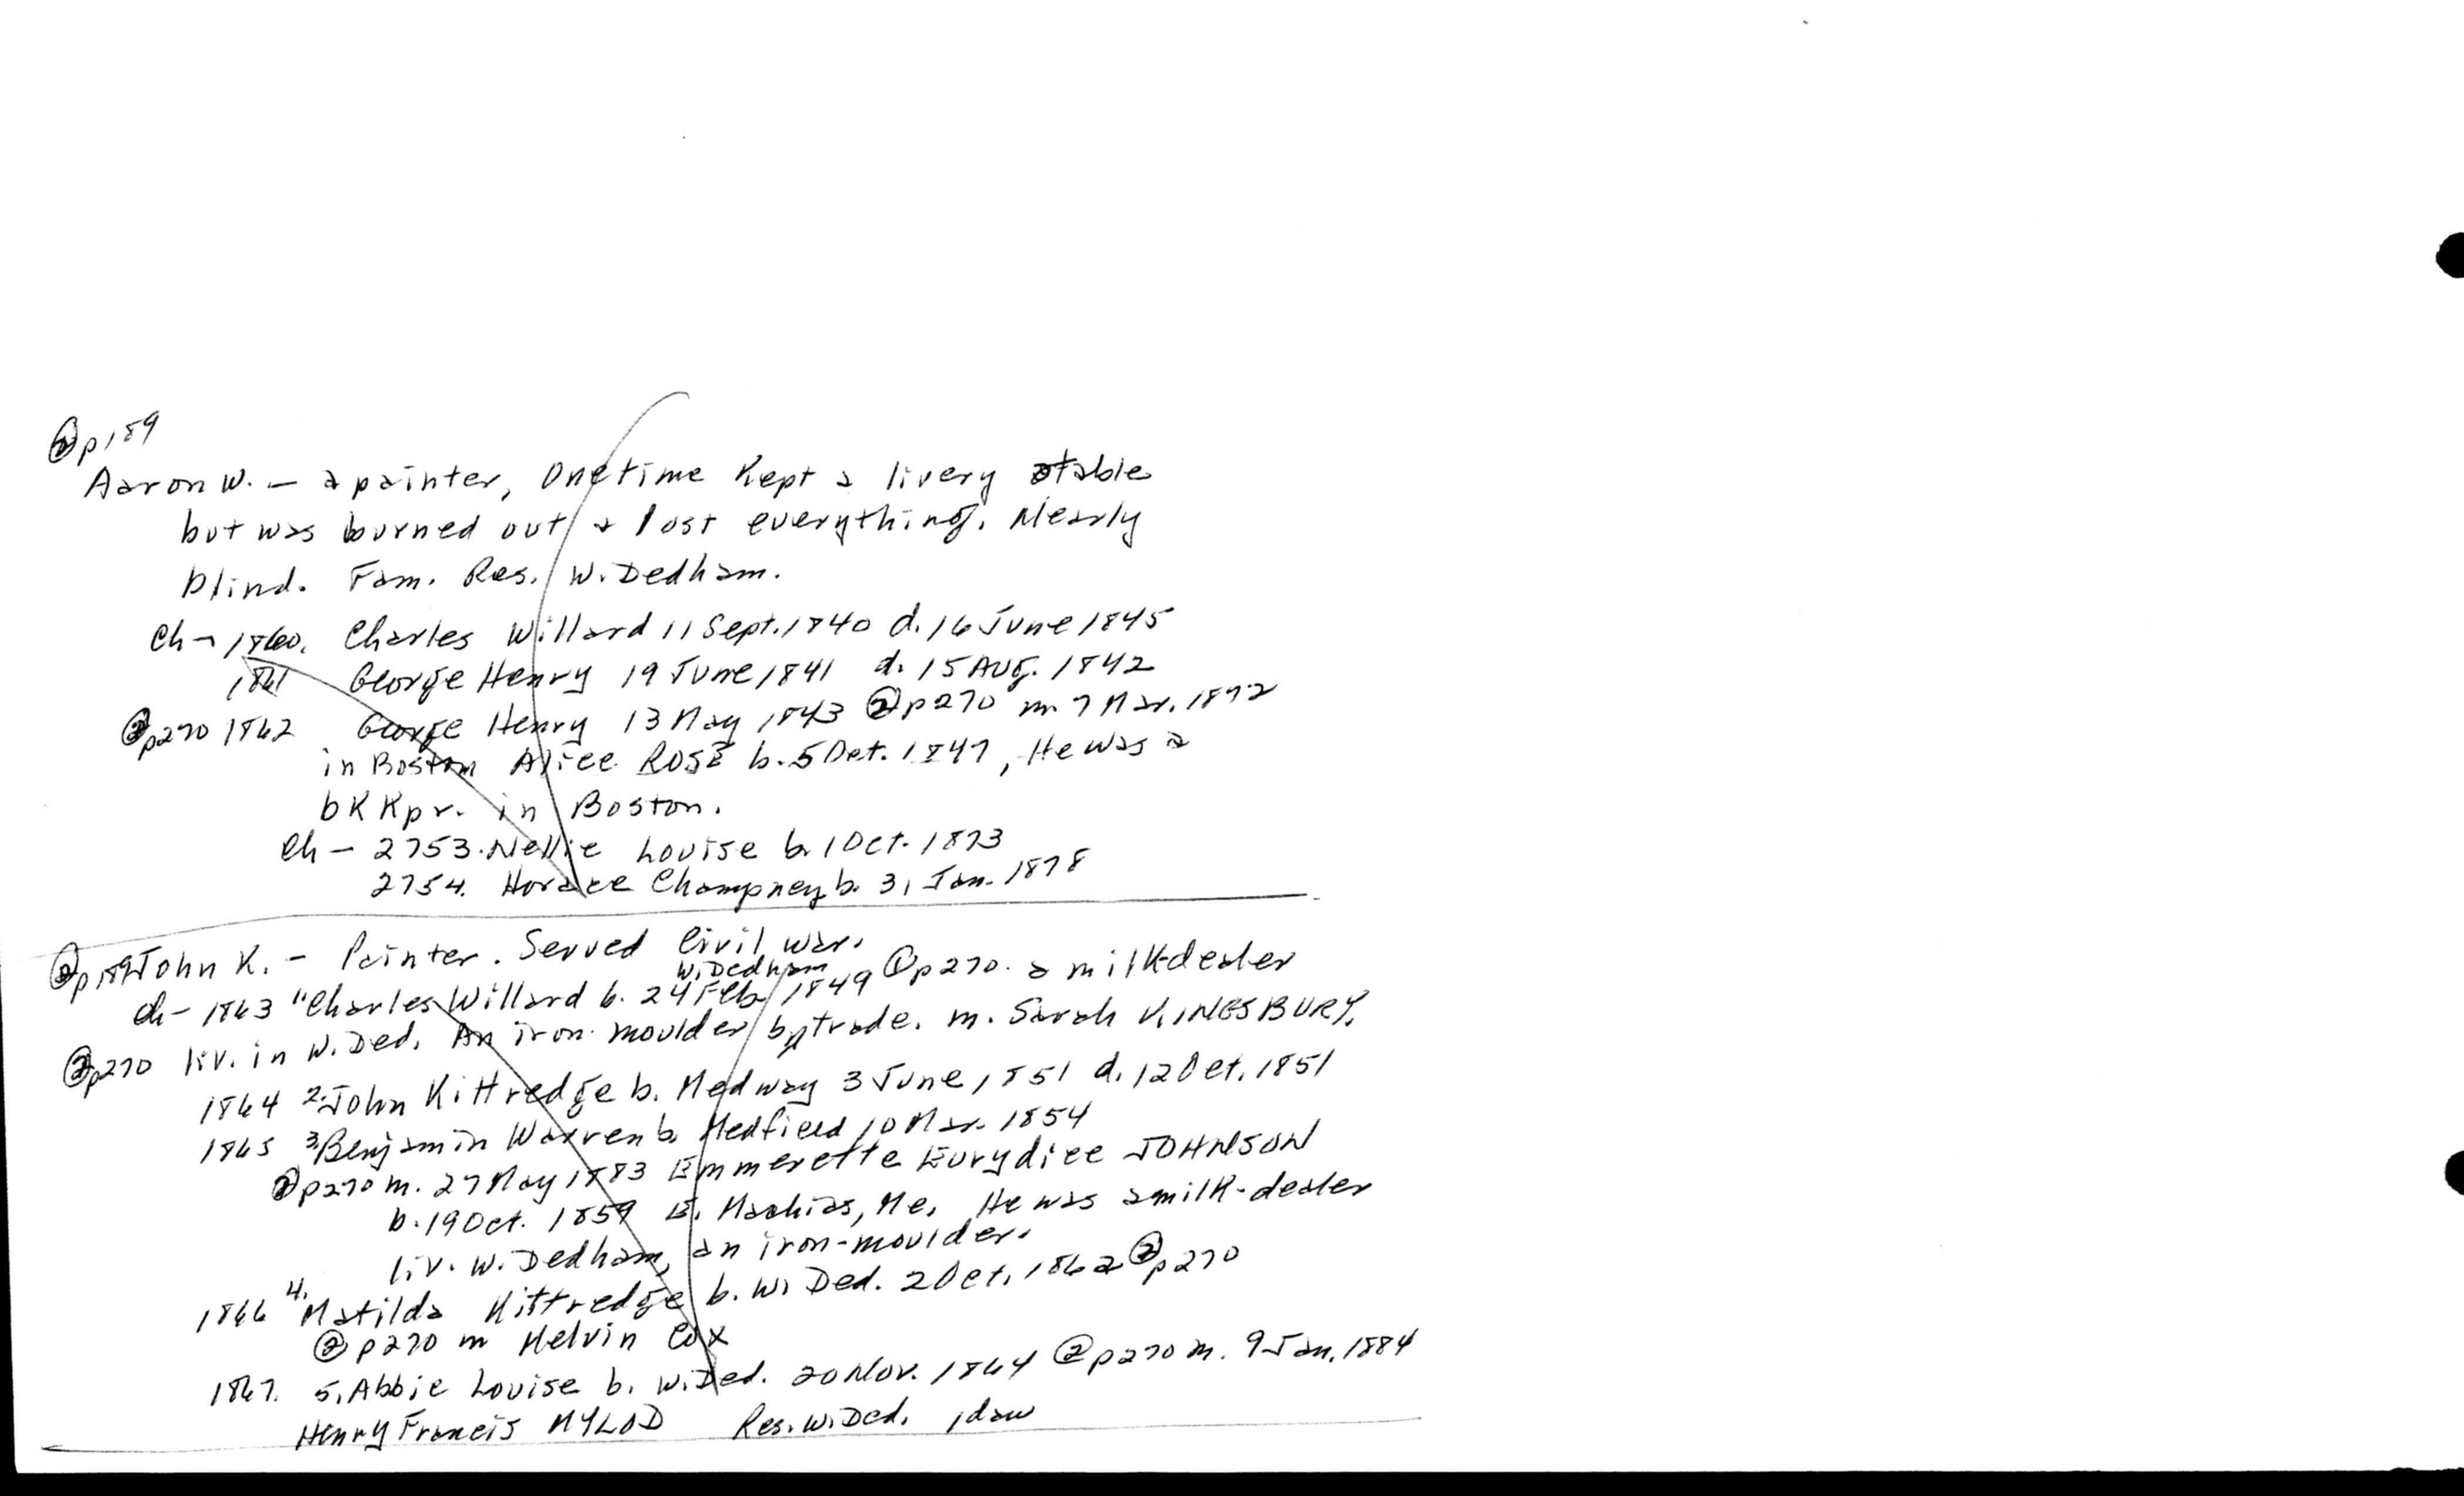 ② p 189
Aaron W. — a painter, One time kept a livery stable
but was burned out & lost everything. Nearly
blind. Fam. Res. W. Dedham.
Ch — 1860. Charles Willard 11 Sept. 1840 d. 16 June 1845
1861 George Henry 19 June 1841 d. 15 Aug. 1842
② p270 1862 George Henry 13 May 1843 ② p270 m. 7 Mar. 1872
in Boston Alice ROSE b. 5 Oct. 1847, He was a
bkkpr. in Boston.
Ch — 2753. Nellie Louise b. 1 Oct. 1873
2754. Horace Champney b. 31 Jan. 1878
② p189 John K. — Painter. Served Civil war.
W. Dedham
ch — 1863 "Charles Willard b. 24 Feb 1849 ② p270. a milk-dealer
② p270 liv. in W. Ded. An iron moulder by trade. m. Sarah KINGSBURY.
1864 2. John Kittredge b. Medway 3 June 1851 d. 12 Oct. 1851
1865 3. Benjamin Warren b. Medfield 10 Mar. 1854
② p270 m. 27 May 1883 Emmerette Eurydice JOHNSON
b. 19 Oct. 1859 E. Machias, Me. He was a milk-dealer
liv. W. Dedham, an iron-moulder.
1866 4. Matilda Kittredge b. W. Ded. 2 Oct. 1862 ② p270
② p270 m Melvin Cox
1867. 5. Abbie Louise b. W. Ded. 20 Nov. 1864 ② p270 m. 9 Jan. 1884
Henry Francis MYLOD Res. W. Ded. 1 dau